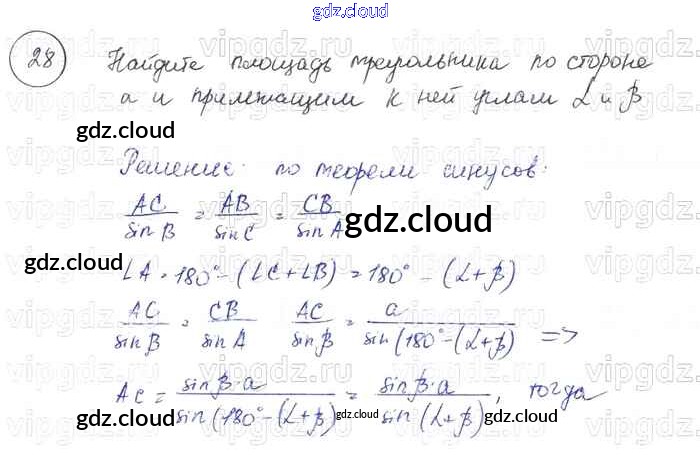 gdz.cloud
28 Найдите площадь треугольника по стороне
a и прилежащим к ней углам α и β
gdz.cloud
Решение: по теореме синусов:
AC/sin B = AB/sin C = CB/sin A
gdz.cloud
gdz.cloud
∠A = 180° - (∠C + ∠B) = 180° - (α + β)
AC/sin β = CB/sin A AC/sin β = a/sin(180° - (α + β) =>
AC = sin β · a/sin(180° - (α + β) = sin β · a/sin(α + β), тогда
gdz.cloud gdz.cloud gdz.cloud